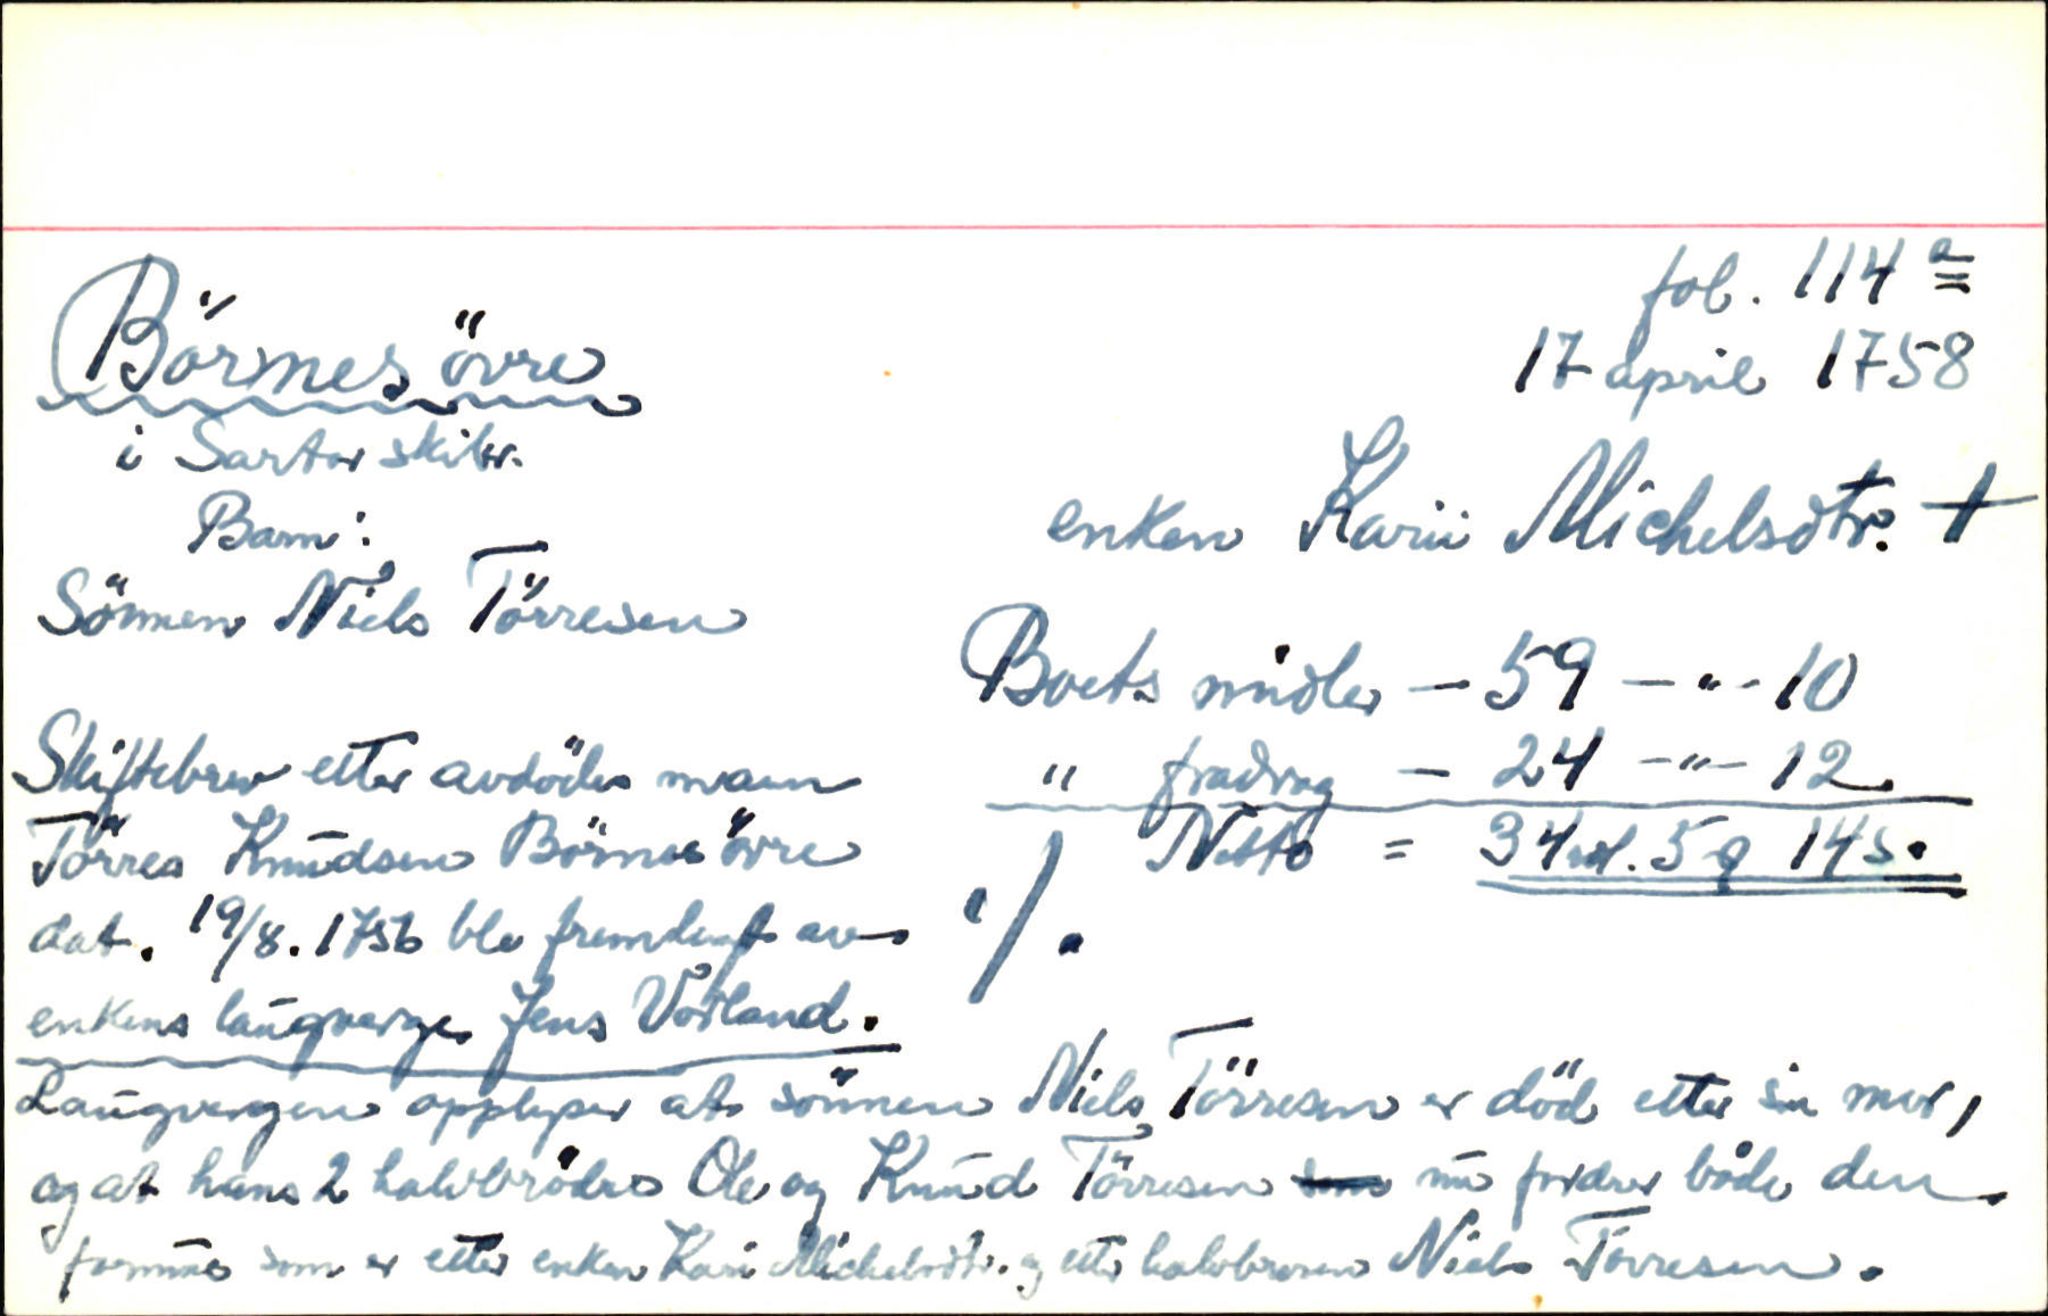 fol. 114 a
17 april 1758
Börnes övre
i Sartor skibr.
Barn:
Sönnen Niels Törresen
enken Karii Michelsdtr. +
Boets midler - 59 - " - 10
" fradrag - 24 - " - 12
Netto = 34 rd. 5 q 14 s.
Skiftebrev etter avdödes mann
Törres Knudsen Börnes övre
dat. 19/8. 1756 ble fremlagt av
enkens laugverge Jens Vorland.
Laugvergen opplyser at sönnen Niels Törresen er död etter sin mor,
og at hans 2 halvbrödre Ole og Knud Törresen nu fordrer både den
formue som er etter enken Kari Michelsdtr. og etter halvbroren Niels Torresen.